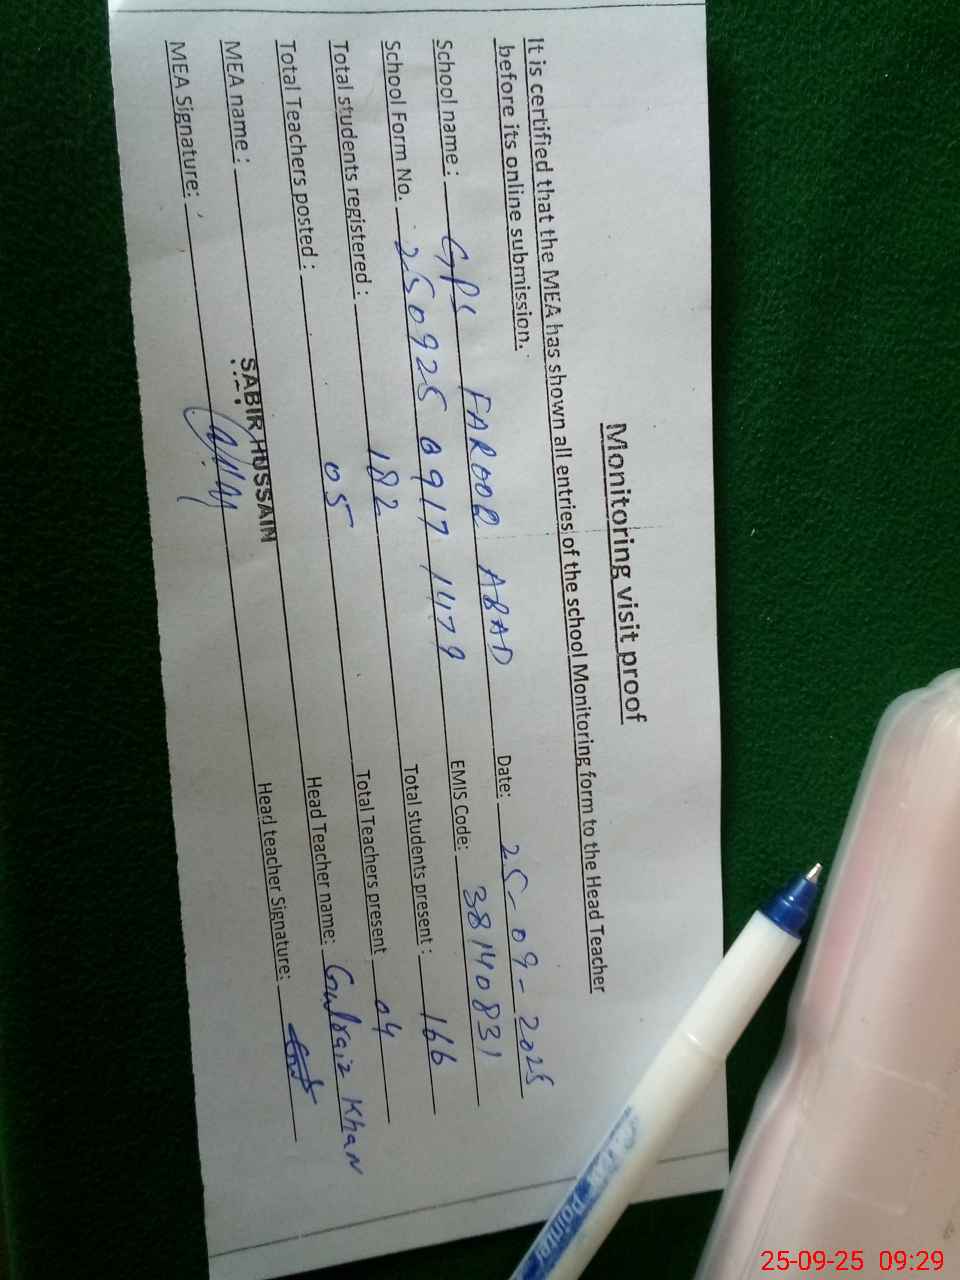 Monitoring visit proof
It is certified that the MEA has shown all entries of the school Monitoring form to the Head Teacher
before its online submission.
School name : GPS FAROOQ ABAD Date: 25-09-2025
School Form No. 250925 0917 1479 EMIS Code: 38140831
Total students registered : 182 Total students present : 166
Total Teachers posted : 05 Total Teachers present 04
MEA name : SABIR HUSSAIN Head Teacher name: Gulraiz Khan
MEA Signature: Head teacher Signature:
Pointer
25-09-25 09:29